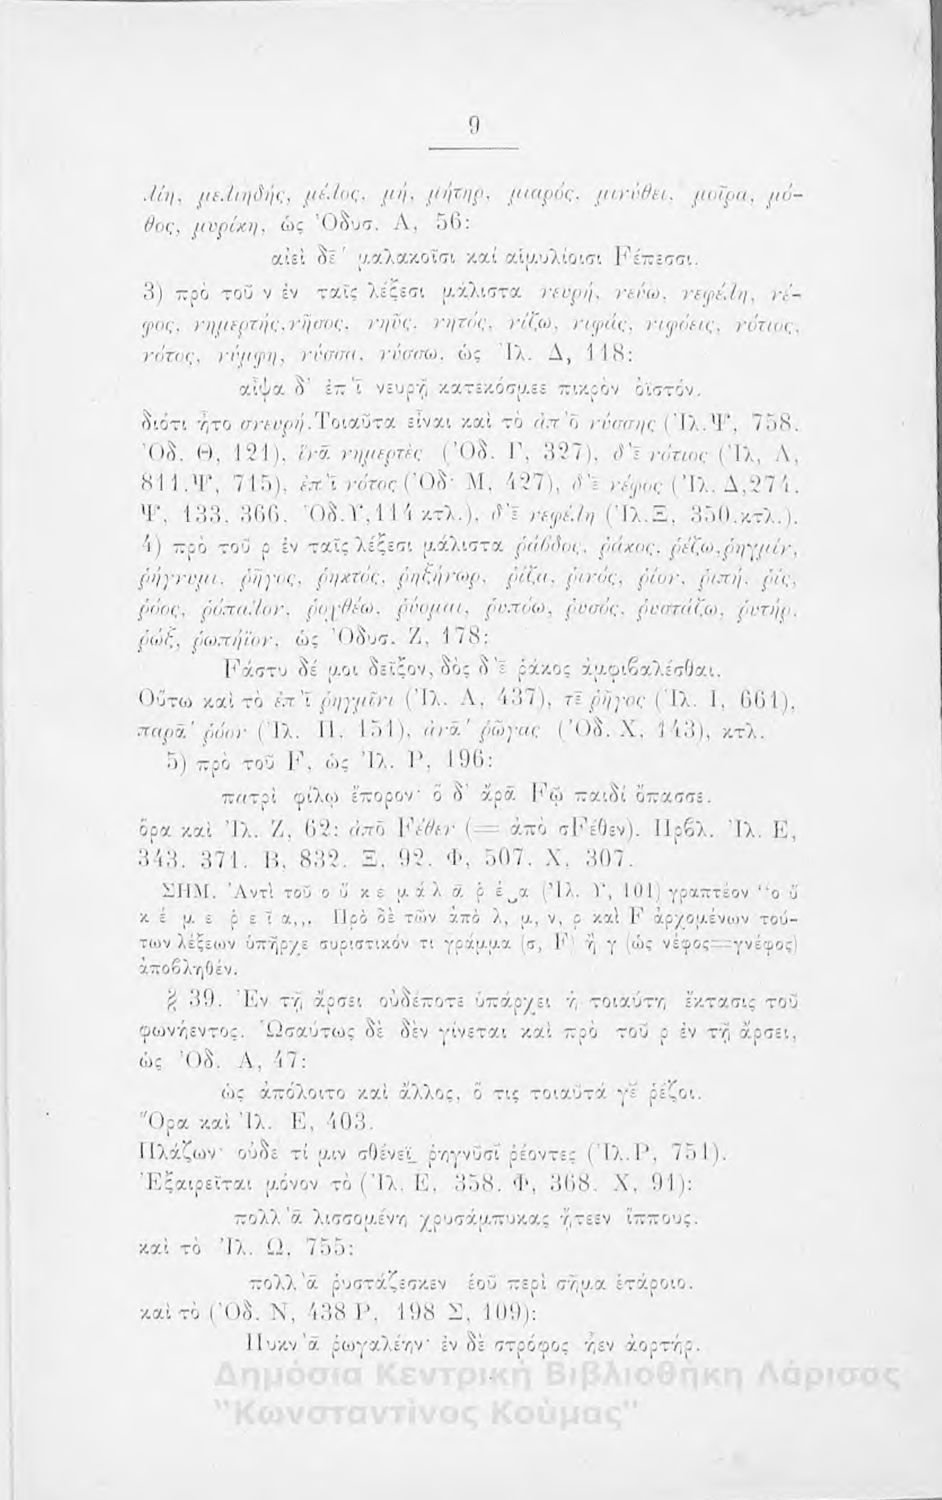 9
λίη, μελιηδής, μέλος, μή, μήτηρ, μιαρός, μινύθει, μοῖρα, μό-
θος, μυρίκη, ὡς Ὀδυσ. Α, 56:
αἰεὶ δε̄ ' μαλακοῖσι καί αἱμυλίοισι Ϝέπεσσι.
3) πρὸ τοῦ ν ἐν ταῖς λέξεσι μάλιστα νευρή, νεύω, νεφέλη, νέ-
φος, νημερτής, νῆσος, νηῦς, νητός, νίζω, νιφάς, νιφόεις, νότιος,
νότος, νύμφη, νύσσα, νύσσω, ὡς Ἰλ. Δ, 118:
αἶψα δ' ἐπ'ῑ νευρῇ κατεκόσμεε πικρὸν ὀϊστόν.
διότι ἦτο σνευρή. Τοιαῦτα εἶναι καὶ τὸ ἀπ'ο̄ νύσσης (Ἰλ. Ψ, 758.
Ὀδ. Θ, 121), ἵνᾱ νημερτὲς (Ὀδ. Γ, 327), δ'ε̄ νότιος (Ἰλ, Λ,
811. Ψ, 715), ἐπ'ῑ νότος (Ὀδ· Μ, 427), δ'ε̄ νέφος (Ἰλ. Δ, 274.
Ψ, 133. 366. Ὀδ. Υ, 114 κτλ.), δ'ε̄ νεφέλη (Ἰλ. Ξ, 350. κτλ.).
4) πρὸ τοῦ ρ ἐν ταῖς λέξεσι μάλιστα ῥάβδος, ῥάκος, ῥέζω, ῥηγμίν,
ῥήγνυμι, ῥῆγος, ῥηκτός, ῥηξήνωρ, ῥίζα, ῥινός, ῥίον, ῥιπή, ῥίς,
ῥόος, ῥόπαλον, ῥοχθέω, ῥύομαι, ῥυπόω, ῥυσός, ῥυστάζω, ῥυτήρ,
ῥώξ, ῥωπήϊον, ὡς Ὀδυσ. Ζ, 178:
Ϝάστυ δέ μοι δεῖξον, δὸς δ'ε̄ ῥάκος ἀμφιβαλέσθαι.
Οὕτω καὶ τὸ ἐπ'ῑ ῥηγμῖνι (Ἰλ. Α, 437), τε̄ ῥῆγος (Ἰλ. Ι, 661),
παρᾱ' ῥόον (Ἰλ. Π, 151), ἀνᾱ' ῥῶγας (Ὀδ. Χ, 143), κτλ.
5) πρὸ τοῦ Ϝ, ὡς Ἰλ. Ρ, 196:
πατρὶ φίλῳ ἔπορον· ὁ δ' ἄρᾱ Ϝῷ παιδί ὄπασσε.
ὅρα καὶ Ἰλ. Ζ, 62: ἀπο̄ Ϝέθεν (= ἀπὸ σϜέθεν). Πρβλ. Ἰλ. Ε,
343. 371. Β, 832. Ξ, 92. Φ, 507. Χ, 307.
ΣΗΜ. Ἀντὶ τοῦ οὔ κε μάλᾱ ῥέ‿α (Ἰλ. Υ, 101) γραπτέον “οὔ
κέ με ῥεῖα,,. Πρὸ δὲ τῶν ἀπὸ λ, μ, ν, ρ καὶ Ϝ ἀρχομένων τού-
των λέξεων ὑπῆρχε συριστικόν τι γράμμα (σ, Ϝ) ἢ γ (ὡς νέφος=γνέφος)
ἀποβληθέν.
§ 39. Ἐν τῇ ἄρσει οὐδέποτε ὑπάρχει ἡ τοιαύτη ἔκτασις τοῦ
φωνήεντος. Ὡσαύτως δὲ δὲν γίνεται καὶ πρὸ τοῦ ρ ἐν τῇ ἄρσει,
ὡς Ὀδ. Α, 47:
ὡς ἀπόλοιτο καὶ ἄλλος, ὅ τις τοιαῦτά γε̆ ῥέζοι.
Ὅρα καὶ Ἰλ. Ε, 403.
Πλάζων· οὐδε τί μιν σθένεϊ_ ῥηγνῦσῐ ῥέοντες (Ἰλ. Ρ, 751).
Ἐξαιρεῖται μόνον τὸ (Ἰλ. Ε, 358. Φ, 368. Χ, 91):
πολλ'ᾱ λισσομένη χρυσάμπυκας ᾔτεεν ἵππους.
καὶ τὸ Ἰλ. Ω, 755:
πολλ'ᾱ ῥυστάζεσκεν ἑοῦ περὶ σῆμα ἑτάροιο.
καὶ τὸ (Ὀδ. Ν, 438 Ρ, 198 Σ, 109):
Πυκν'ᾱ ῥωγαλέην· ἐν δὲ στρόφος ἦεν ἀορτήρ.
Δημόσια Κεντρική Βιβλιοθήκη Λάρισας
"Κωνσταντίνος Κούμας"